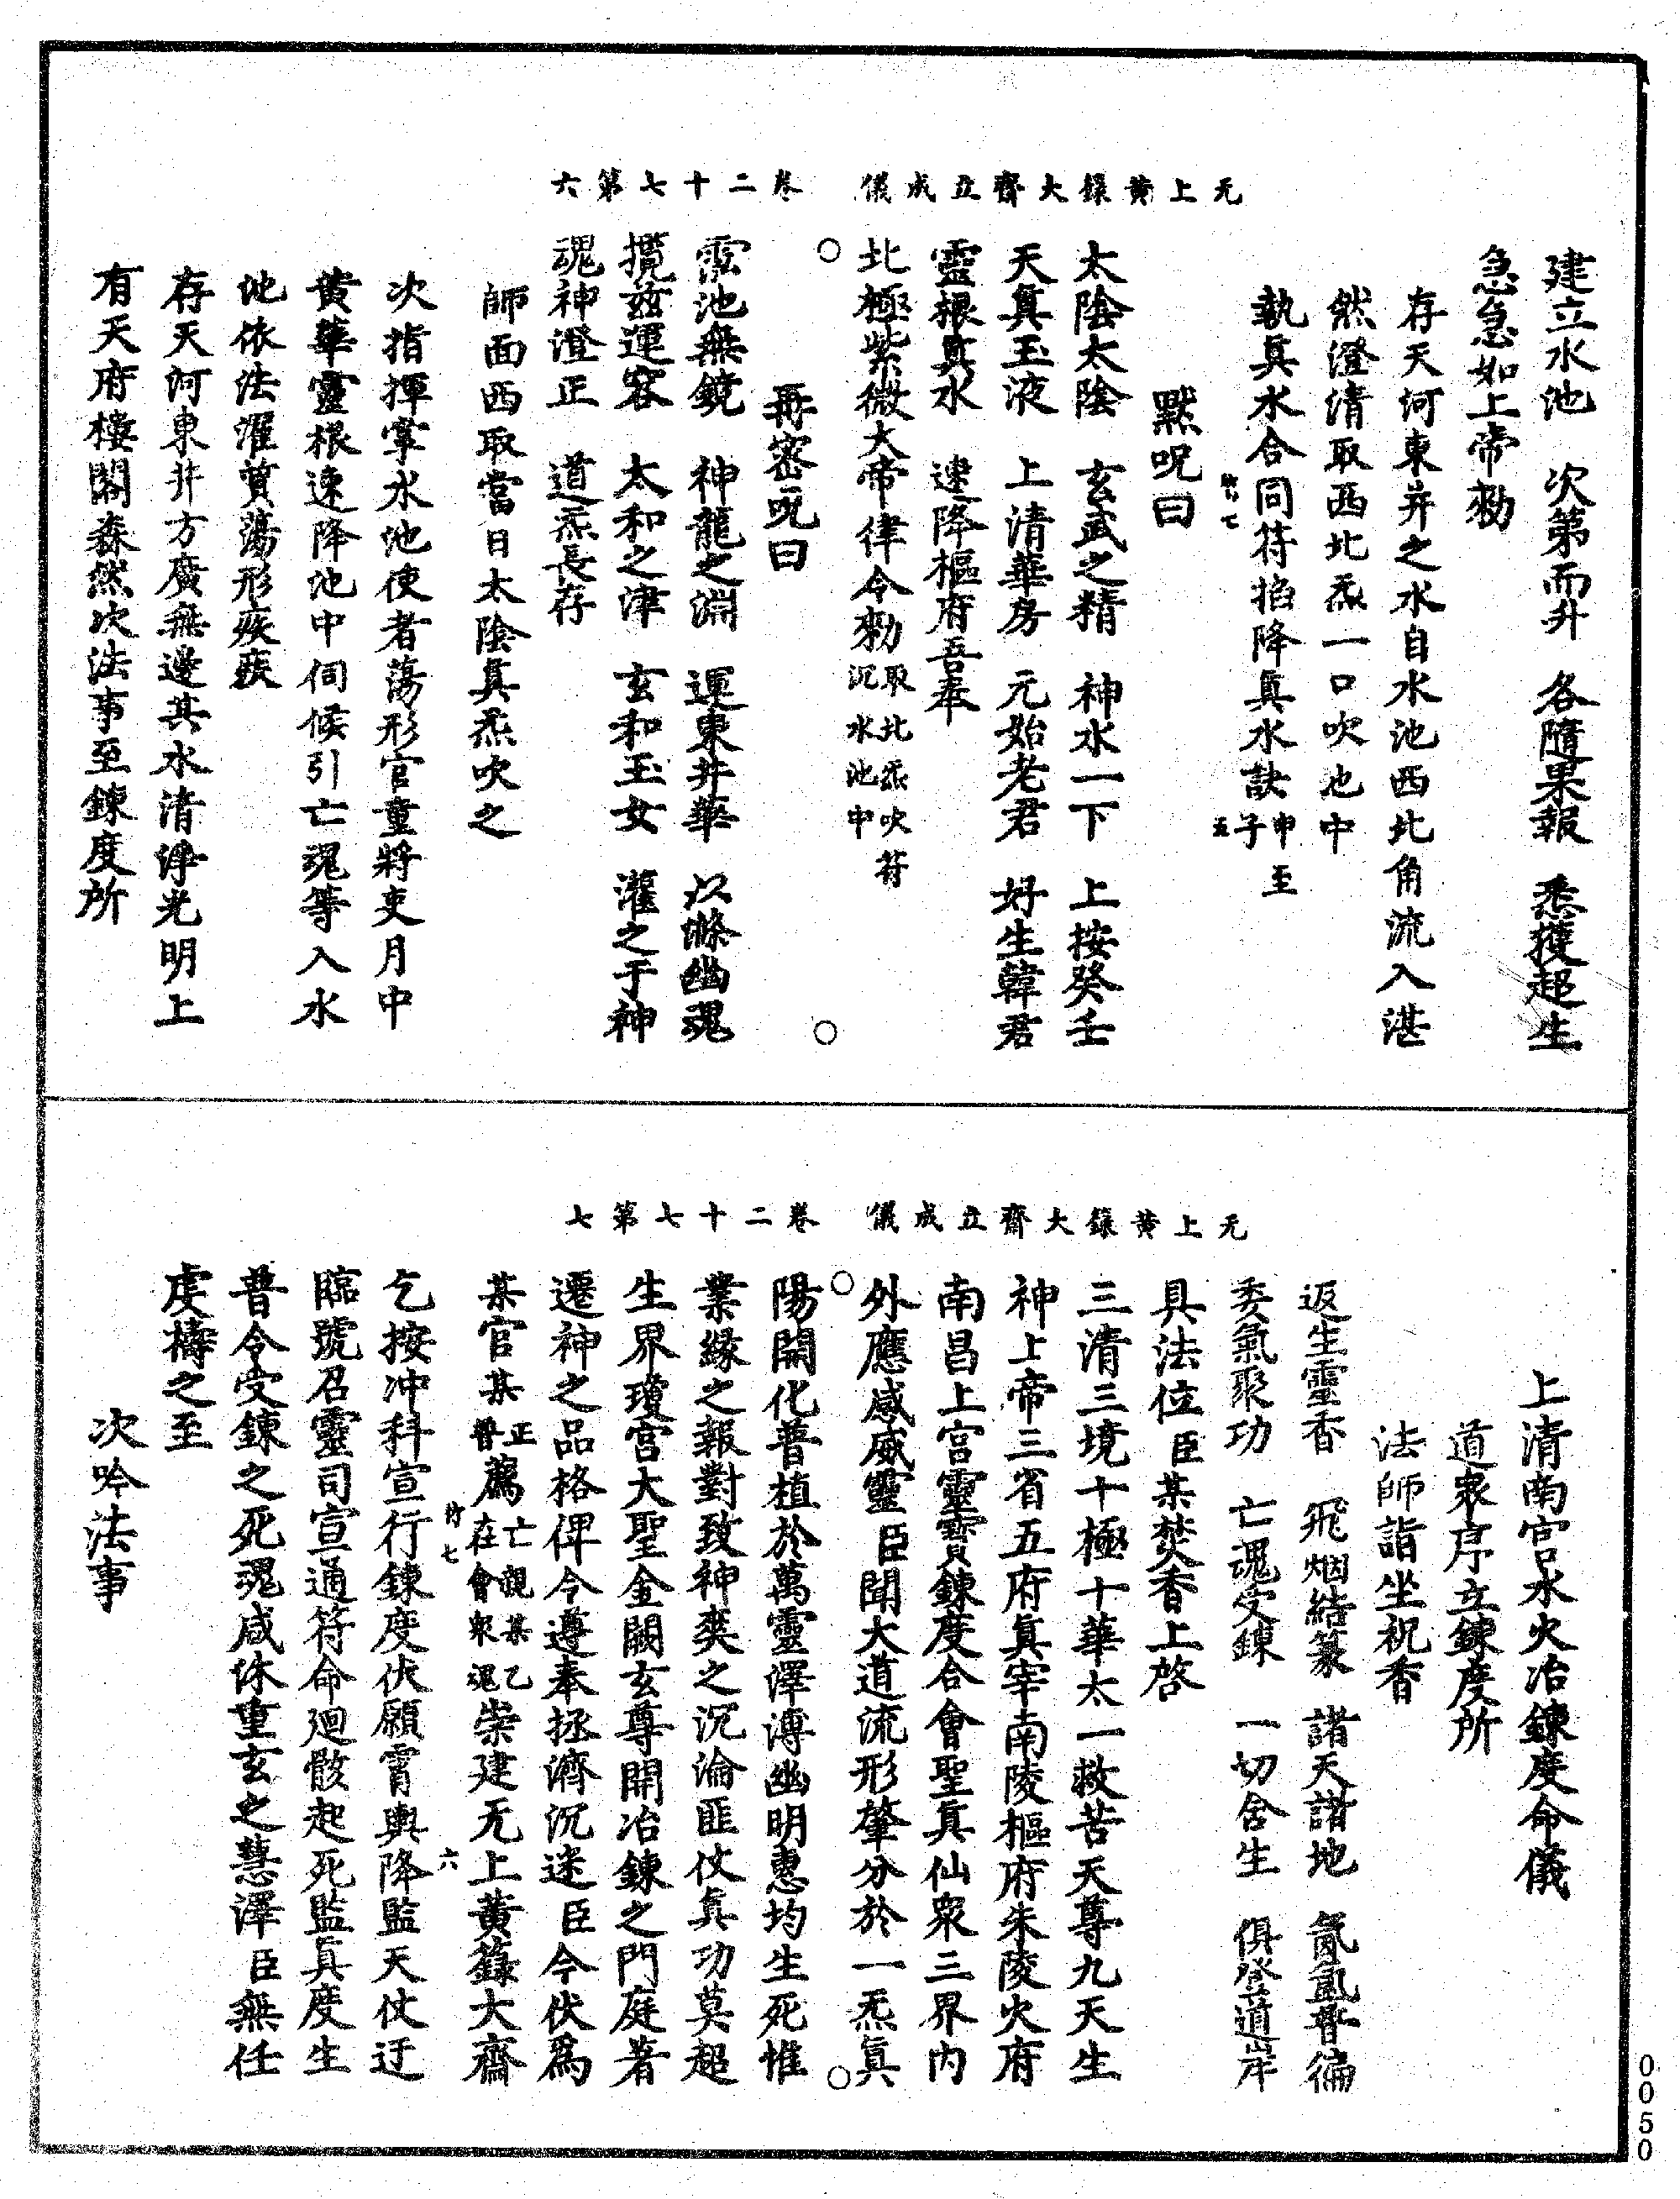 无上黃籙大齋立成儀　卷二十七第六
建立水池　次第而升　各隨果報　悉獲超生
急急如上帝勑
存天河東井之水自水池西北角流入湛
然澄清取西北炁一口吹池中
執眞水合同符掐降眞水訣申至子五
默呪曰
太陰太陰　玄武之精　神水一下　上按癸壬
天眞玉液　上清華房　元始老君　好生韓君
靈根眞水　速降樞府吾奉
北極紫微大帝律令勑取北炁吹符沉水池中
再密呪曰
霐池無鏡　神龍之淵　運東井華　以滌幽魂
攬玆運容　太和之津　玄和玉女　灌之于神
魂神澄正　道炁長存
師面西取當日太陰眞炁吹之
次指揮掌水池使者蕩形官童將吏月中
黃華靈根速降池中伺候引亡魂等入水
池依法濯質蕩形疾疾
存天河東井方廣無邊其水清淨光明上
有天府樓閣森然次法事至鍊度所
无上黃籙大齋立成儀　卷二十七第七
上清南宮水火冶鍊度命儀
道衆序立鍊度所
法師詣坐祝香
返生靈香　飛烟結篆　諸天諸地　氤氳普徧
委氣聚功　亡魂受鍊　一切含生　俱登道岸
具法位臣某焚香上啓
三清三境十極十華太一救苦天尊九天生
神上帝三省五府眞宰南陵樞府朱陵火府
南昌上宮靈寶鍊度合會聖眞仙衆三界內
外應感威靈臣聞大道流形肇分於一炁眞
陽開化普植於萬靈澤溥幽明惠均生死惟
業緣之報對致神爽之沉淪匪仗眞功莫超
生界瓊宮大聖金闕玄尊開冶鍊之門庭著
遷神之品格俾今遵奉拯濟沉迷臣今伏爲
某官某正普薦亡親某乙在會衆魂崇建无上黃籙大齋
乞按冲科宣行鍊度伏願霄輿降監天仗迂
臨號召靈司宣通符命廻骸起死監眞度生
普令受鍊之死魂咸沐重玄之慧澤臣無任
虔禱之至
次吟法事
0050